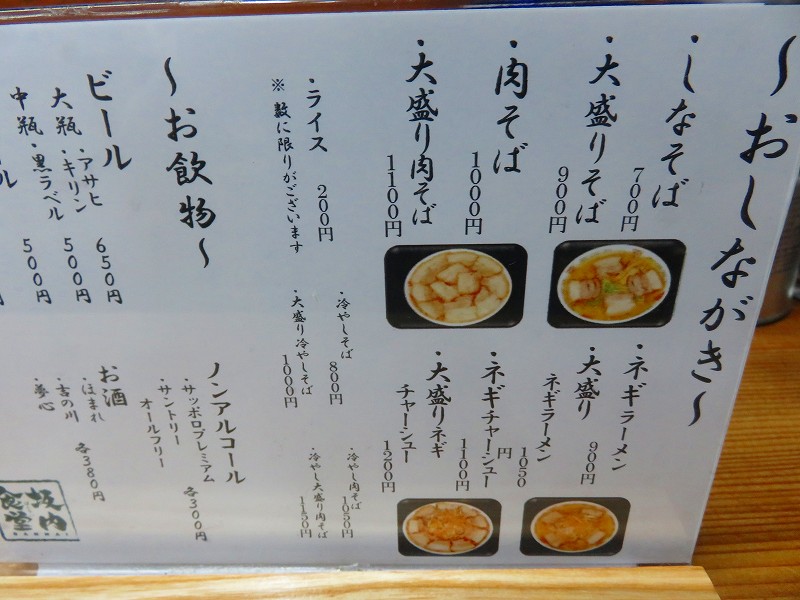 ～おしながき～
・しなそば
700円
・大盛りそば
900円
・肉そば
1000円
・大盛り肉そば
1100円
・ネギラーメン
900円
・大盛り
ネギラーメン
1050円
・ネギチャーシュー
1100円
・大盛りネギ
チャーシュー
1200円
・ライス
200円
※ 数に限りがございます
・冷やしそば
800円
・大盛り冷やしそば
1000円
・冷やし肉そば
1050円
・冷やし大盛り肉そば
1150円
～お飲物～
ビール
大瓶・アサヒ 650円
・キリン 500円
中瓶・黒ラベル 500円
ノンアルコール
・サッポロプレミアム
・サントリー
オールフリー
各300円
お酒
・ほまれ
・吉の川
・夢心
各380円
坂内
食堂